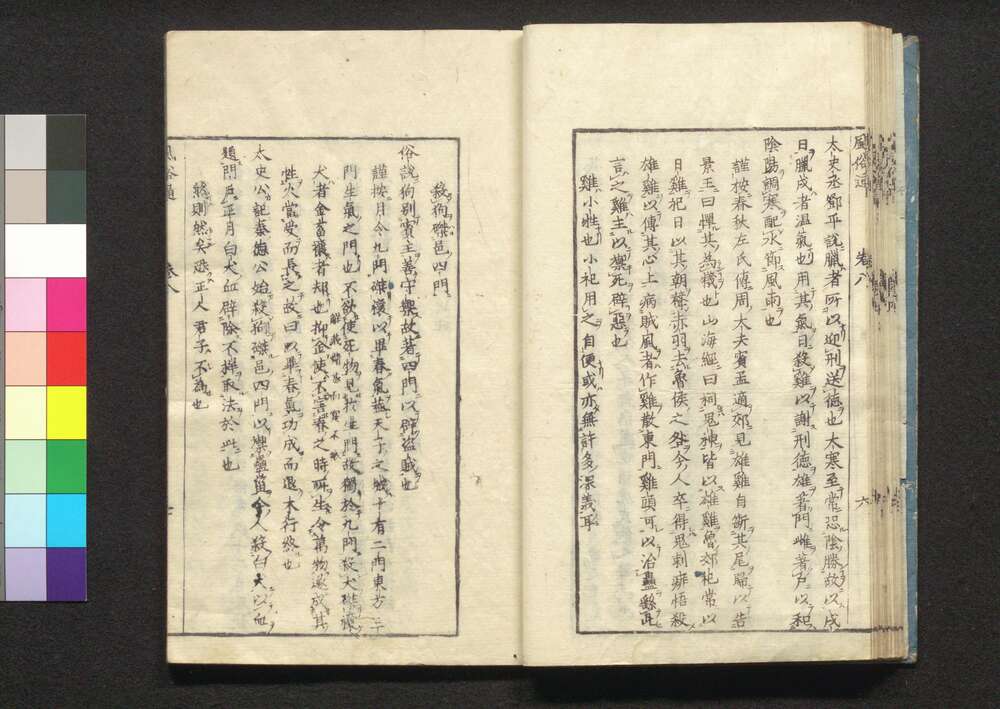 風俗通 卷八 六
太史丞鄧平說臘者所以迎刑送德也大寒至常恐陰勝故以戌
日臘戌者温氣也用其氣日殺雞以謝刑德雄著門雌著戸以和
陰陽調寒配水節風雨也
謹按春秋左氏傳周大夫賓孟適郊見雄雞自斷其尾歸以告
景王曰憚其為犧也山海經曰祠鬼神皆以雄雞魯郊祀常以
日雞祀日以其朝聲赤羽去魯侯之咎今人卒得鬼刺痱悟殺
雄雞以傳其心上病賊風者作雞散東門雞頭可以治蠱繇此
言之雞主以禦死辟惡也
雞小牲也小祀用之自便或亦無許多深義耳
殺狗磔邑四門
俗說狗別賓主善守禦故著四門以辟盗賊也
謹按月令九門磔禳以畢春氣蓋天子之城十有二門東方三
門生氣之門也不欲使死物見於生門故獨於九門殺犬磔禳
犬者金畜禳者却也抑金使不害春之時所生令萬物遂成其
性火當受而長之故曰以畢春氣功成而退木行終也
太史公記秦德公始殺狗磔邑四門以禦蠱菑今人殺白犬以血
題門戸正月白犬血辟除不祥取法於此也
終則然矣恐正人君子不為也
風俗通 卷八